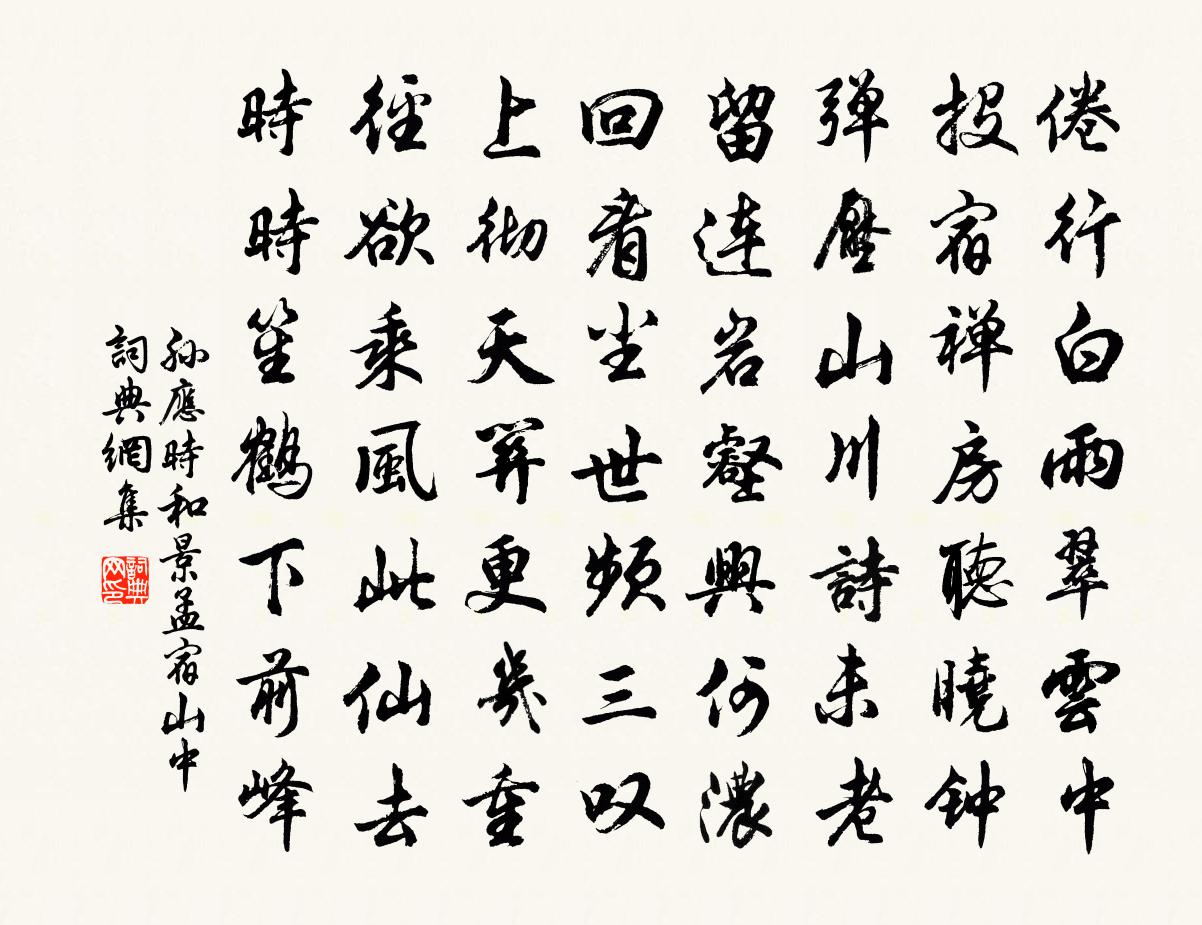 倦行白雨翠雲中
投宿禅房聽曉钟
弹壓山川詩未老
留連岩壑興何濃
回看尘世頻三叹
上彻天關更幾重
徑欲乘風此仙去
時時笙鶴下前峰
孙應時和景孟宿山中
詞典網集
詞典网印